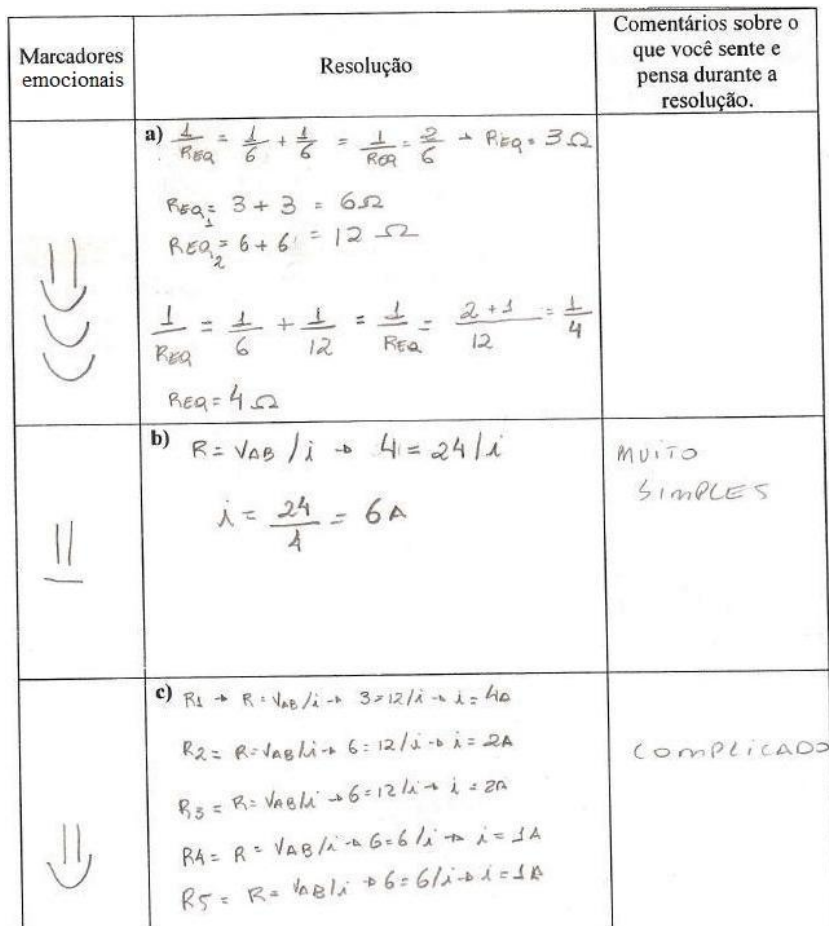 Marcadores emocionais
Resolução
Comentários sobre o que você sente e pensa durante a resolução.
a) 1/REQ = 1/6 + 1/6 = 1/REQ = 2/6 → REQ = 3 Ω
REQ1 = 3 + 3 = 6Ω
REQ2 = 6 + 6 = 12 Ω
1/REQ = 1/6 + 1/12 = 1/REQ = 2+1/12 = 1/4
REQ = 4 Ω
b) R = VAB / i → 4 = 24 / i
i = 24/4 = 6A
MUITO
SIMPLES
c) R1 → R = VAB / i → 3 = 12 / i → i = 4A
R2 = R = VAB / i → 6 = 12 / i → i = 2A
R3 = R = VAB / i → 6 = 12 / i → i = 2A
R4 = R = VAB / i → 6 = 6 / i → i = 1A
R5 = R = VAB / i → 6 = 6 / i → i = 1A
COMPLICADO